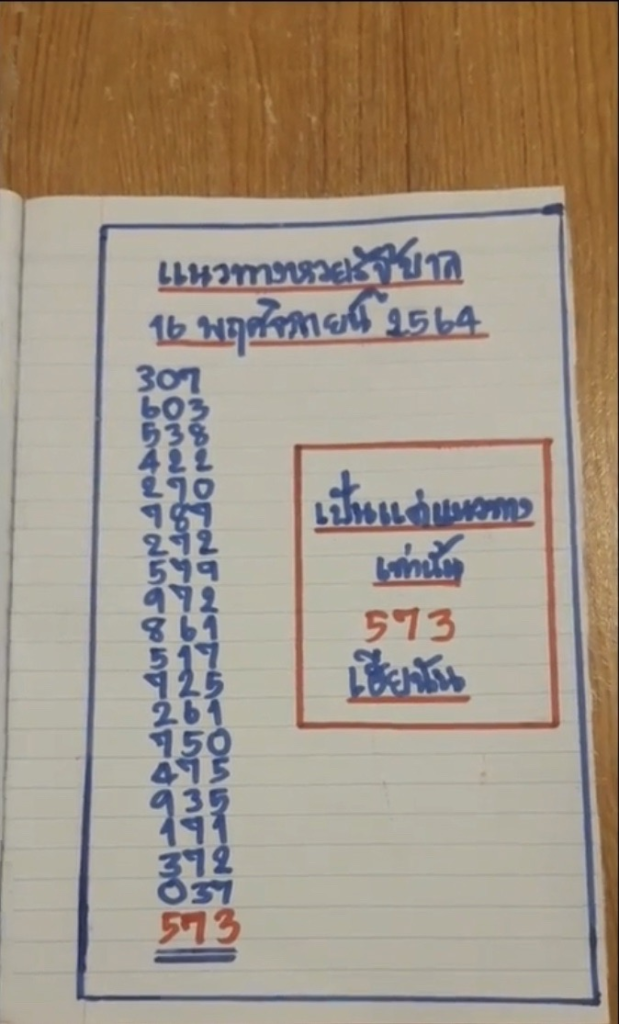 แนวทางหวยรัฐบาล
16 พฤศจิกายน 2564
307
603
538
422
270
787
272
579
972
861
517
725
261
750
475
935
191
372
037
573
เป็นแค่แนวทาง
เท่านั้น
573
เฮียนัน